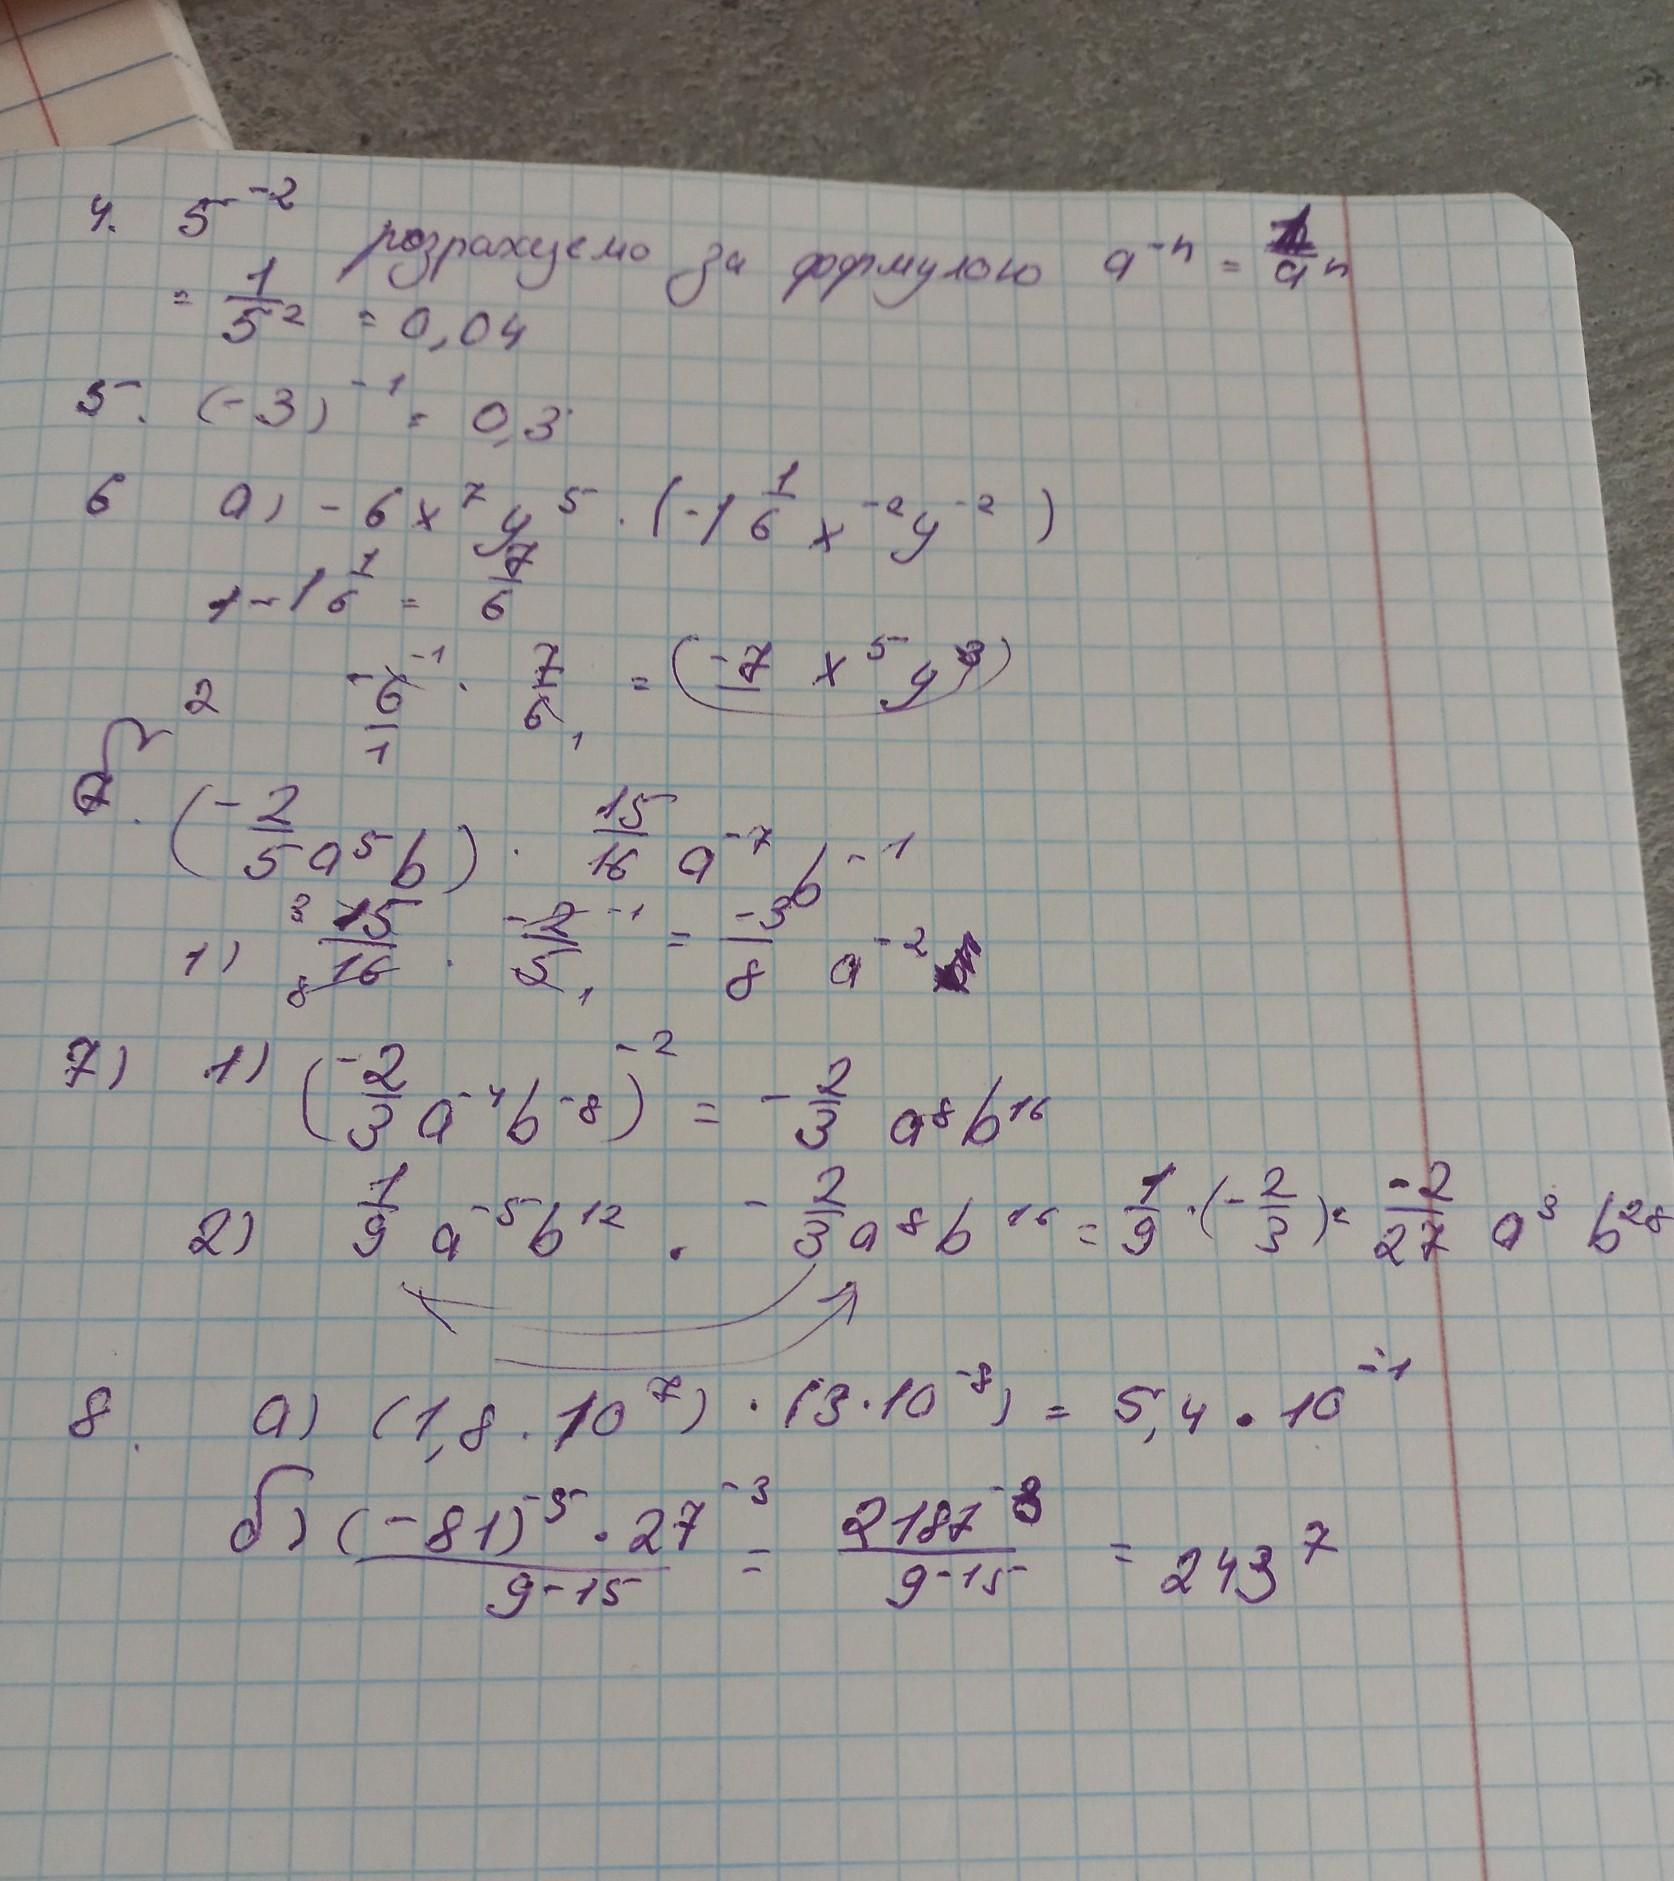 4. 5⁻² розрахуємо за формулою a⁻ⁿ = 1/aⁿ
= 1/5² = 0,04
5. (-3)⁻¹ = 0,3
6 а) -6x⁷y⁵ · (-1 1/6 x⁻²y⁻²)
1 -1 1/6 = 7/6
2 -6⁻¹/1 · 7/6 1 = (-7 x⁵y³)
б. (-2/5 a⁵b) · 15/16 a⁻⁷b⁻¹
1) 3 15/16 8 · -2/5 -1 1 = -3/8 a⁻²
7) 1) (-2/3 a⁻⁴b⁻⁸)⁻² = -2/3 a⁸b¹⁶
2) 1/9 a⁻⁵b¹² · -2/3 a⁸b¹⁶ = 1/9 · (-2/3) = -2/27 a³ b²⁸
8. а) (1,8 · 10⁷) · (3 · 10⁻⁸) = 5,4 · 10⁻¹
б) (-81)⁻⁵ · 27⁻³/9⁻¹⁵ = 2187⁻⁸/9⁻¹⁵ = 243⁷